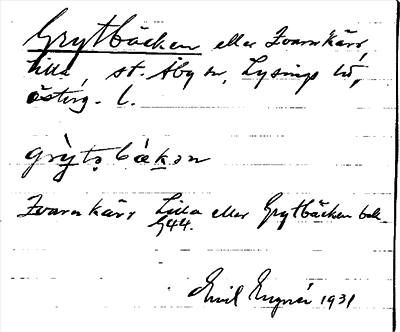 Grytbäcken eller Kvarnkärr,
Lilla, St. Åby sn, Lysings hd,
Österg. l.
grỳtə̣bäḳən
Kvarnkärr Lilla eller Grytbäcken bol
G44.
Emil 1931